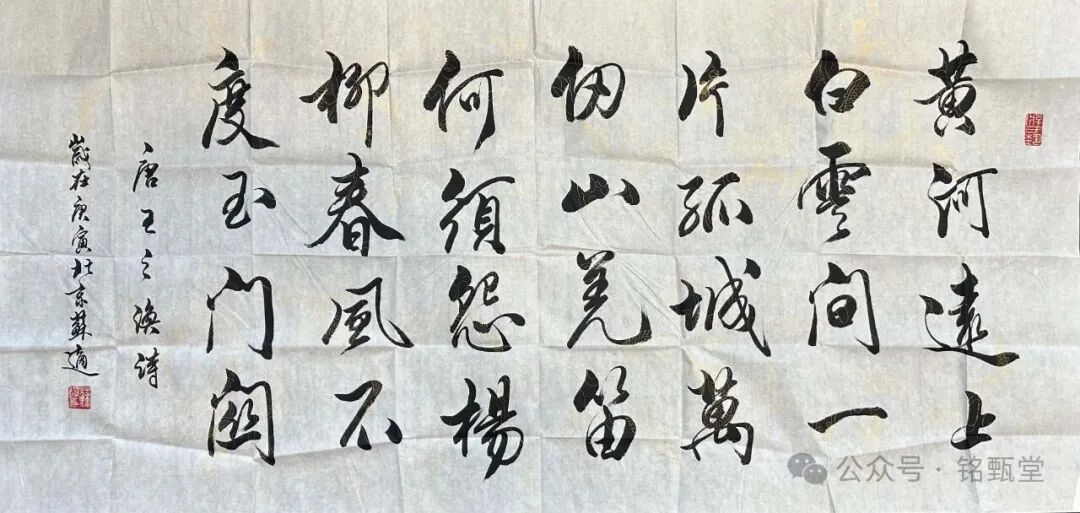 黃河遠上
白雲间一
片孤城萬
仞山羌笛
何須怨楊
柳春風不
度玉门関
唐王之渙詩
歲在庚寅北京蘇適
公众号·铭甄堂